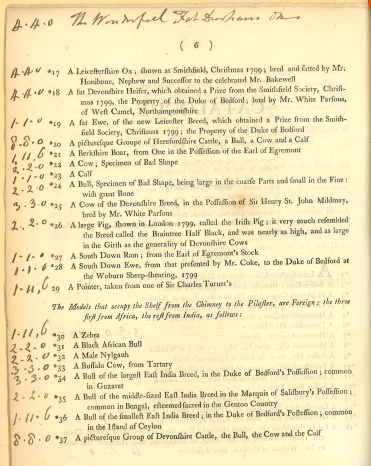 4-4-0 The Wonderful Fat Durham Ox
( 6 )
4-4-0 *17 A Leicestershire Ox ; shown at Smithfield, Christmas 1799 ; bred and fatted by Mr.
Honibone, Nephew and Successor to the celebrated Mr. Bakewell
4-4-0 *18 A fat Devonshire Heifer, which obtained a Prize from the Smithfield Society, Christ-
mas 1799, the Property of the Duke of Bedford ; bred by Mr. White Parsons,
of West Camel, Northamptonshire
1-1-0 *19 A fat Ewe, of the new Leicester Breed, which obtained a Prize from the Smith-
field Society, Christmas 1799 ; the Property of the Duke of Bedford
8-8-0 *20 A picturesque Groupe of Herefordshire Cattle, a Bull, a Cow and a Calf
1,11,6 *21 A Berkshire Boar, from One in the Possession of the Earl of Egremont
2-2-0 *22 A Cow ; Specimen of Bad Shape
1-1-0 *23 A Calf
2-2-0 *24 A Bull, Specimen of Bad Shape, being large in the coarse Parts and small in the Fine :
with great Bone
3-3-0 *25 A Cow of the Devonshire Breed, in the Possession of Sir Henry St. John Mildmay,
bred by Mr. White Parsons
2-2-0 *26 A large Pig, shown in London 1799, called the Irish Pig ; it very much resembled
the Breed called the Braintree Half Black, and was nearly as high, and as large
in the Girth as the generality of Devonshire Cows
1-1-0 *27 A South Down Ram ; from the Earl of Egremont's Stock
1-1-0 *28 A South Down Ewe, from that presented by Mr. Coke, to the Duke of Bedford at
the Woburn Sheep-shearing, 1799
1-11,6 29 A Pointer, taken from one of Sir Charles Turner's
The Models that occupy the Shelf from the Chimney to the Pilaster, are Foreign ; the three
first from Africa, the rest from India, as follows :
1-11,6 *30 A Zebra
2-2-0 *31 A Black African Bull
2-2-0 *32 A Male Nylgauh
3-3-0 *33 A Buffalo Cow, from Tartary
3-3-0 *34 A Bull of the largest East India Breed, in the Duke of Bedford's Possession ; common
in Guzarat
2-2-0 *35 A Bull of the middle-sized East India Breed in the Marquis of Salisbury's Possession ;
common in Bengal, esteemed sacred in the Gentoo Country
1-11-6 *36 A Bull of the smallest East India Breed ; in the Duke of Bedford's Possession ; common
in the Island of Ceylon
8-8-0 *37 A picturesque Group of Devonshire Cattle, the Bull, the Cow and the Calf